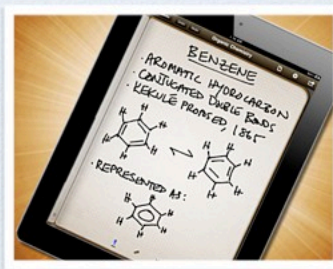 Organic Chemistry
BENZENE
· AROMATIC HYDROCARBON
· CONJUGATED DOUBLE BONDS
· KEKULÉ PROPOSED, 1865
H H H H H H
H H H H H H
· REPRESENTED AS:
H H H H H H